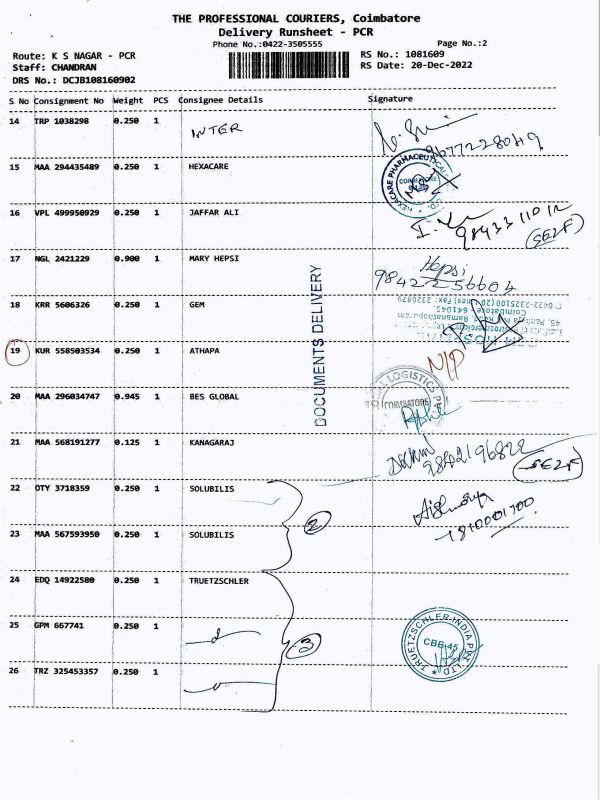 THE PROFESSIONAL COURIERS, Coimbatore
Delivery Runsheet - PCR
Phone No.:0422-3505555 Page No.:2
Route: K S NAGAR - PCR RS No.: 1081609
Staff: CHANDRAN RS Date: 20-Dec-2022
DRS No.: DCJB108160902
S No Consignment No Weight PCS Consignee Details Signature
14 TRP 1038298 0.250 1 INTER
9677228049
15 MAA 294435489 0.250 1 HEXACARE
HEXACARE PHARMACEUTICAL
16 VPL 499950929 0.250 1 JAFFAR ALI
(SELF)
17 NGL 2421229 0.900 1 MARY HEPSI Hepsi
9842256604
18 KRR 5606326 0.250 1 GEM
DOCUMENTS DELIVERY
19 KUR 558503534 0.250 1 ATHAPA N/P
20 MAA 296034747 0.945 1 BES GLOBAL
LOGISTICS
COIMBATORE
21 MAA 568191277 0.125 1 KANAGARAJ
9842196822 SELF
22 OTY 3718359 0.250 1 SOLUBILIS
2
23 MAA 567593950 0.250 1 SOLUBILIS
24 EDQ 14922580 0.250 1 TRUETZSCHLER
25 GPM 667741 0.250 1
3
TRUETZSCHLER INDIA PVT. LTD
CBE-45
26 TRZ 325453357 0.250 1